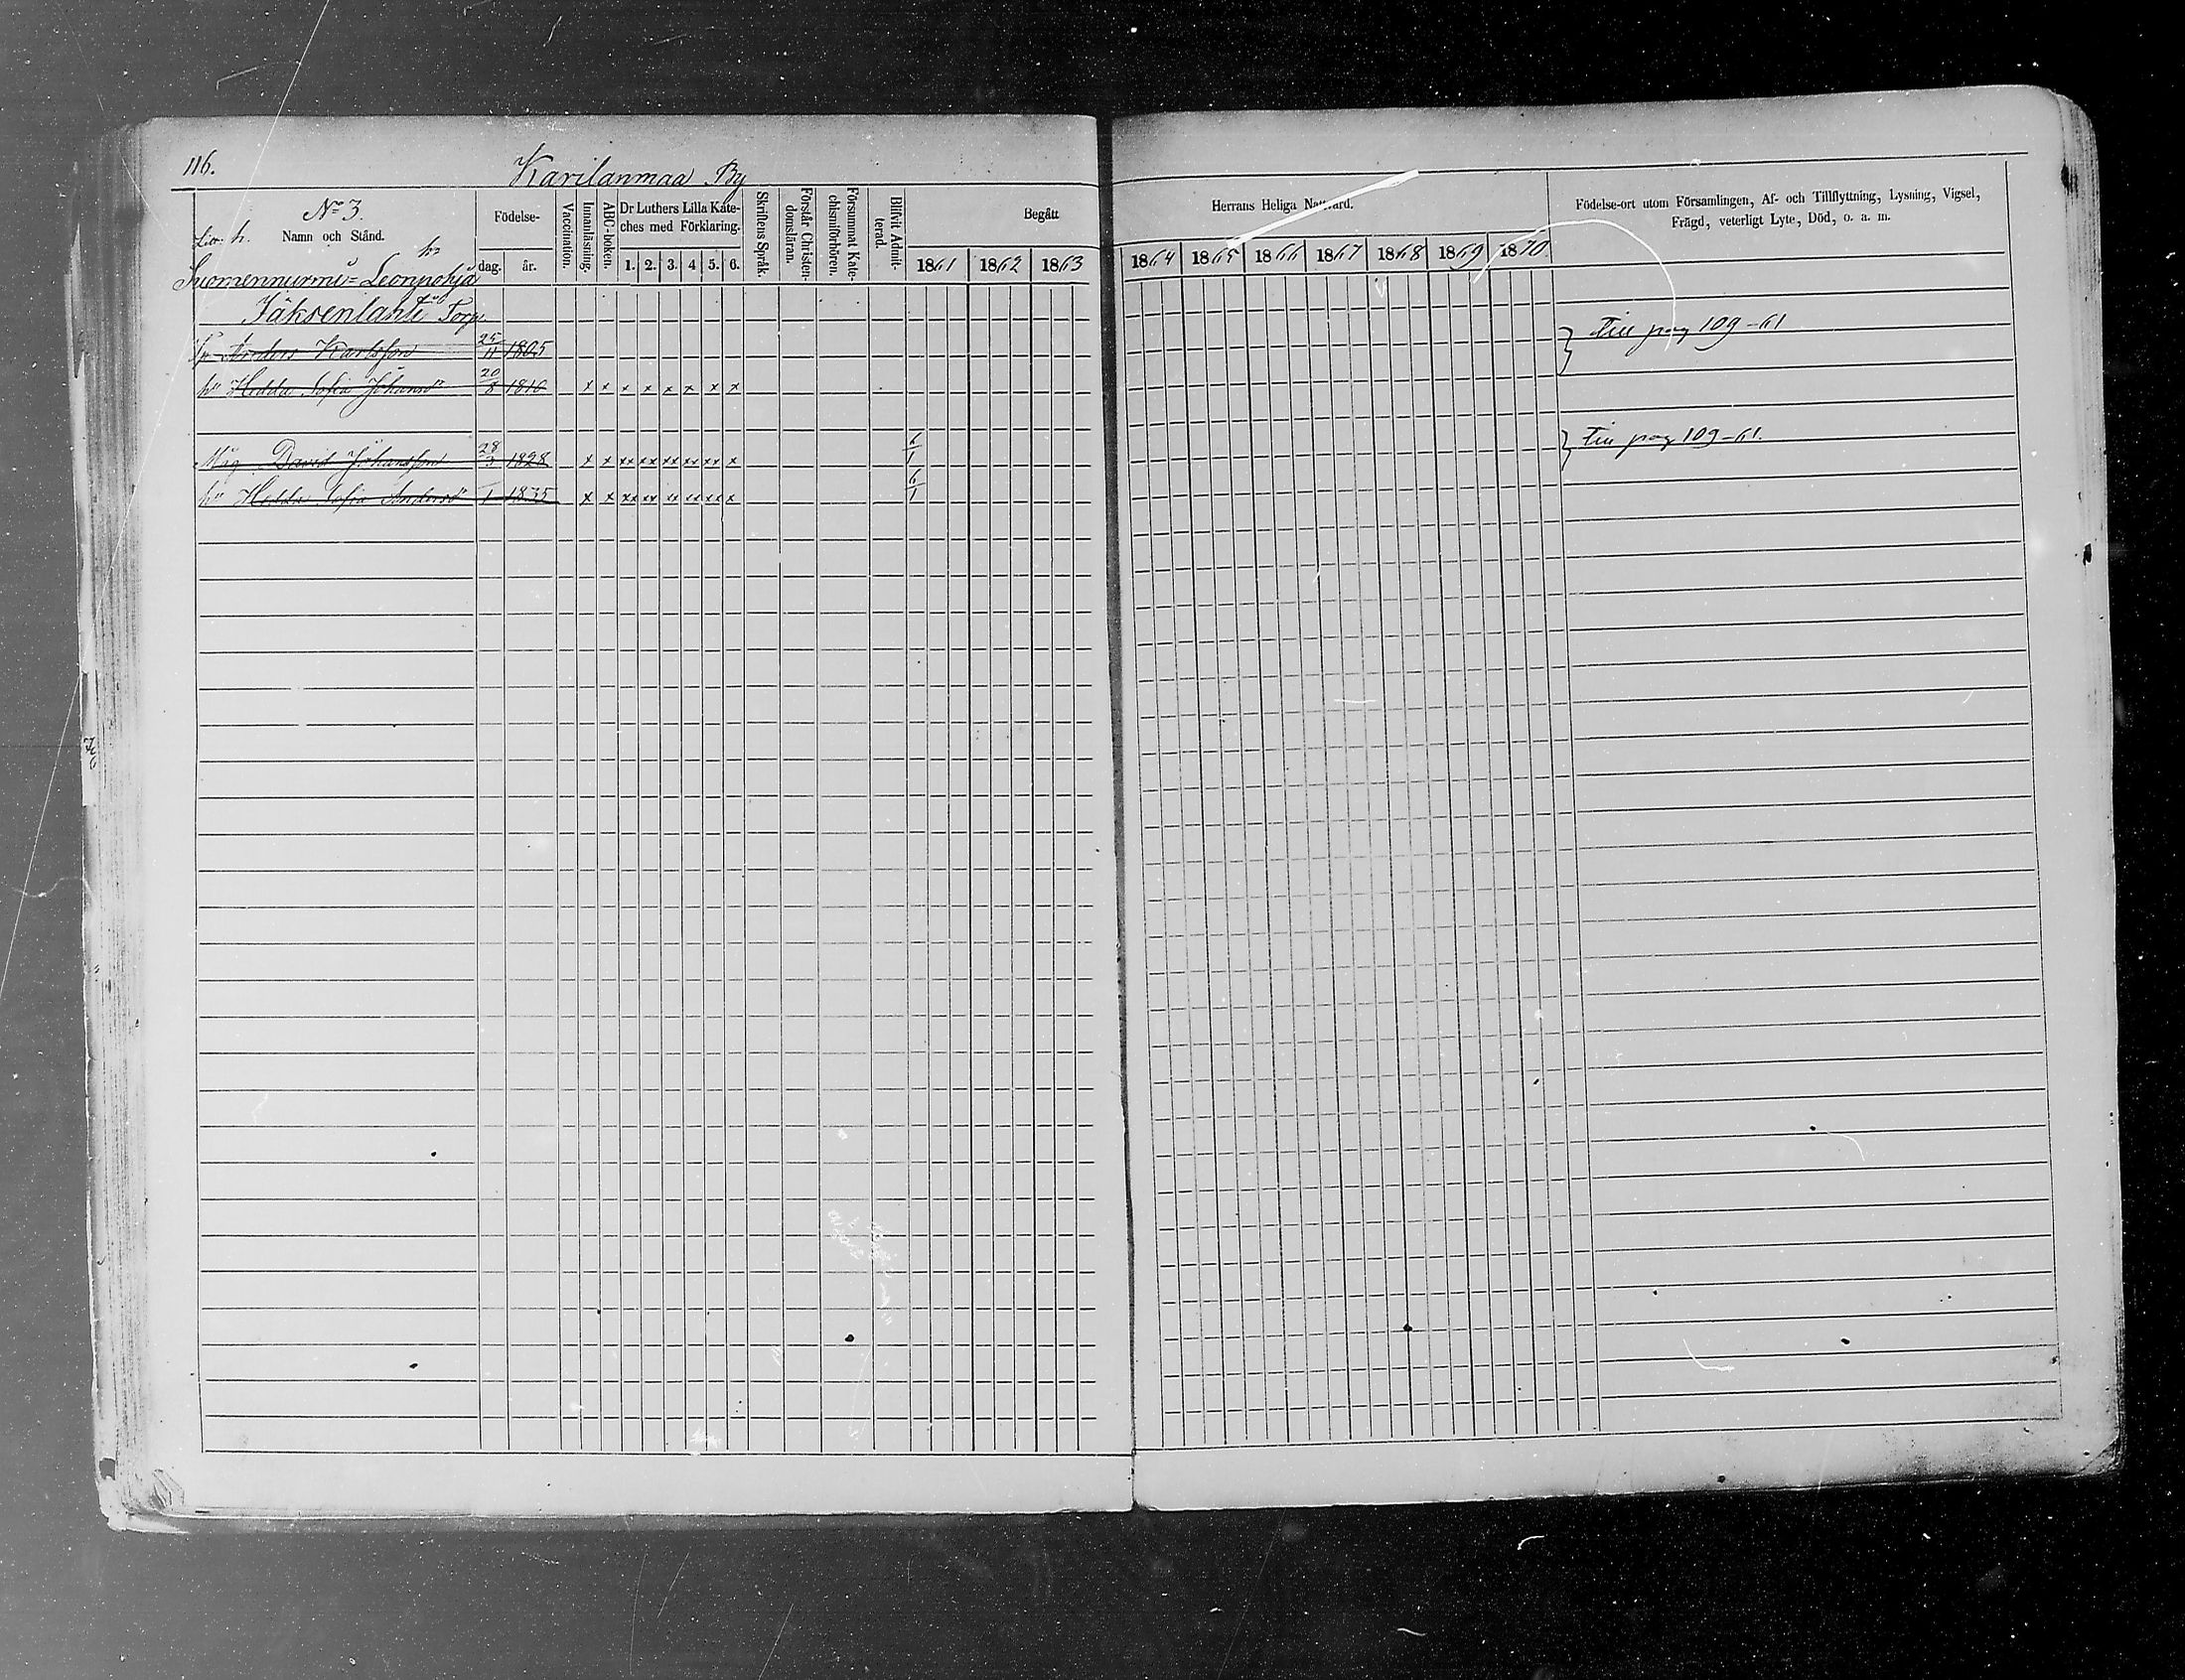 116.
Karilanmaa By
No 3.
Namn och Stånd.
Födelse-
dag. år.
Vaccination.
Innanläsning.
ABC-boken.
Dr Luthers Lilla Kate-
ches med Förklaring.
1. 2. 3. 4. 5. 6.
Skriftens Språk.
Förstår Christen-
domsläran.
Försummat Kate-
chismiförhören.
Blifvit Admit-
terad.
Begått
1861 1862 1863
Herrans Heliga Nattvard.
1864 1865 1866 1867 1868 1869 1870.
Födelse-ort utom Församlingen, Af- och Tillflyttning, Lysning, Vigsel,
Frägd, veterligt Lyte, Död, o. a. m.
Suomennurmi = Leonpohja
Jäksenlahti Torp.
Anders Karlsson 25/11 1805 Till pag 109-61
hu Hedda Sofia Johansdr 20/8 1810 x x x x x x x x
Måg David Johansson 28/3 1828 x x xx xx xx xx xx x 6/1 Till pag 109-61.
hu Hedda Sofia Andersdr 1835 x x xx xx xx xx xx x 6/1